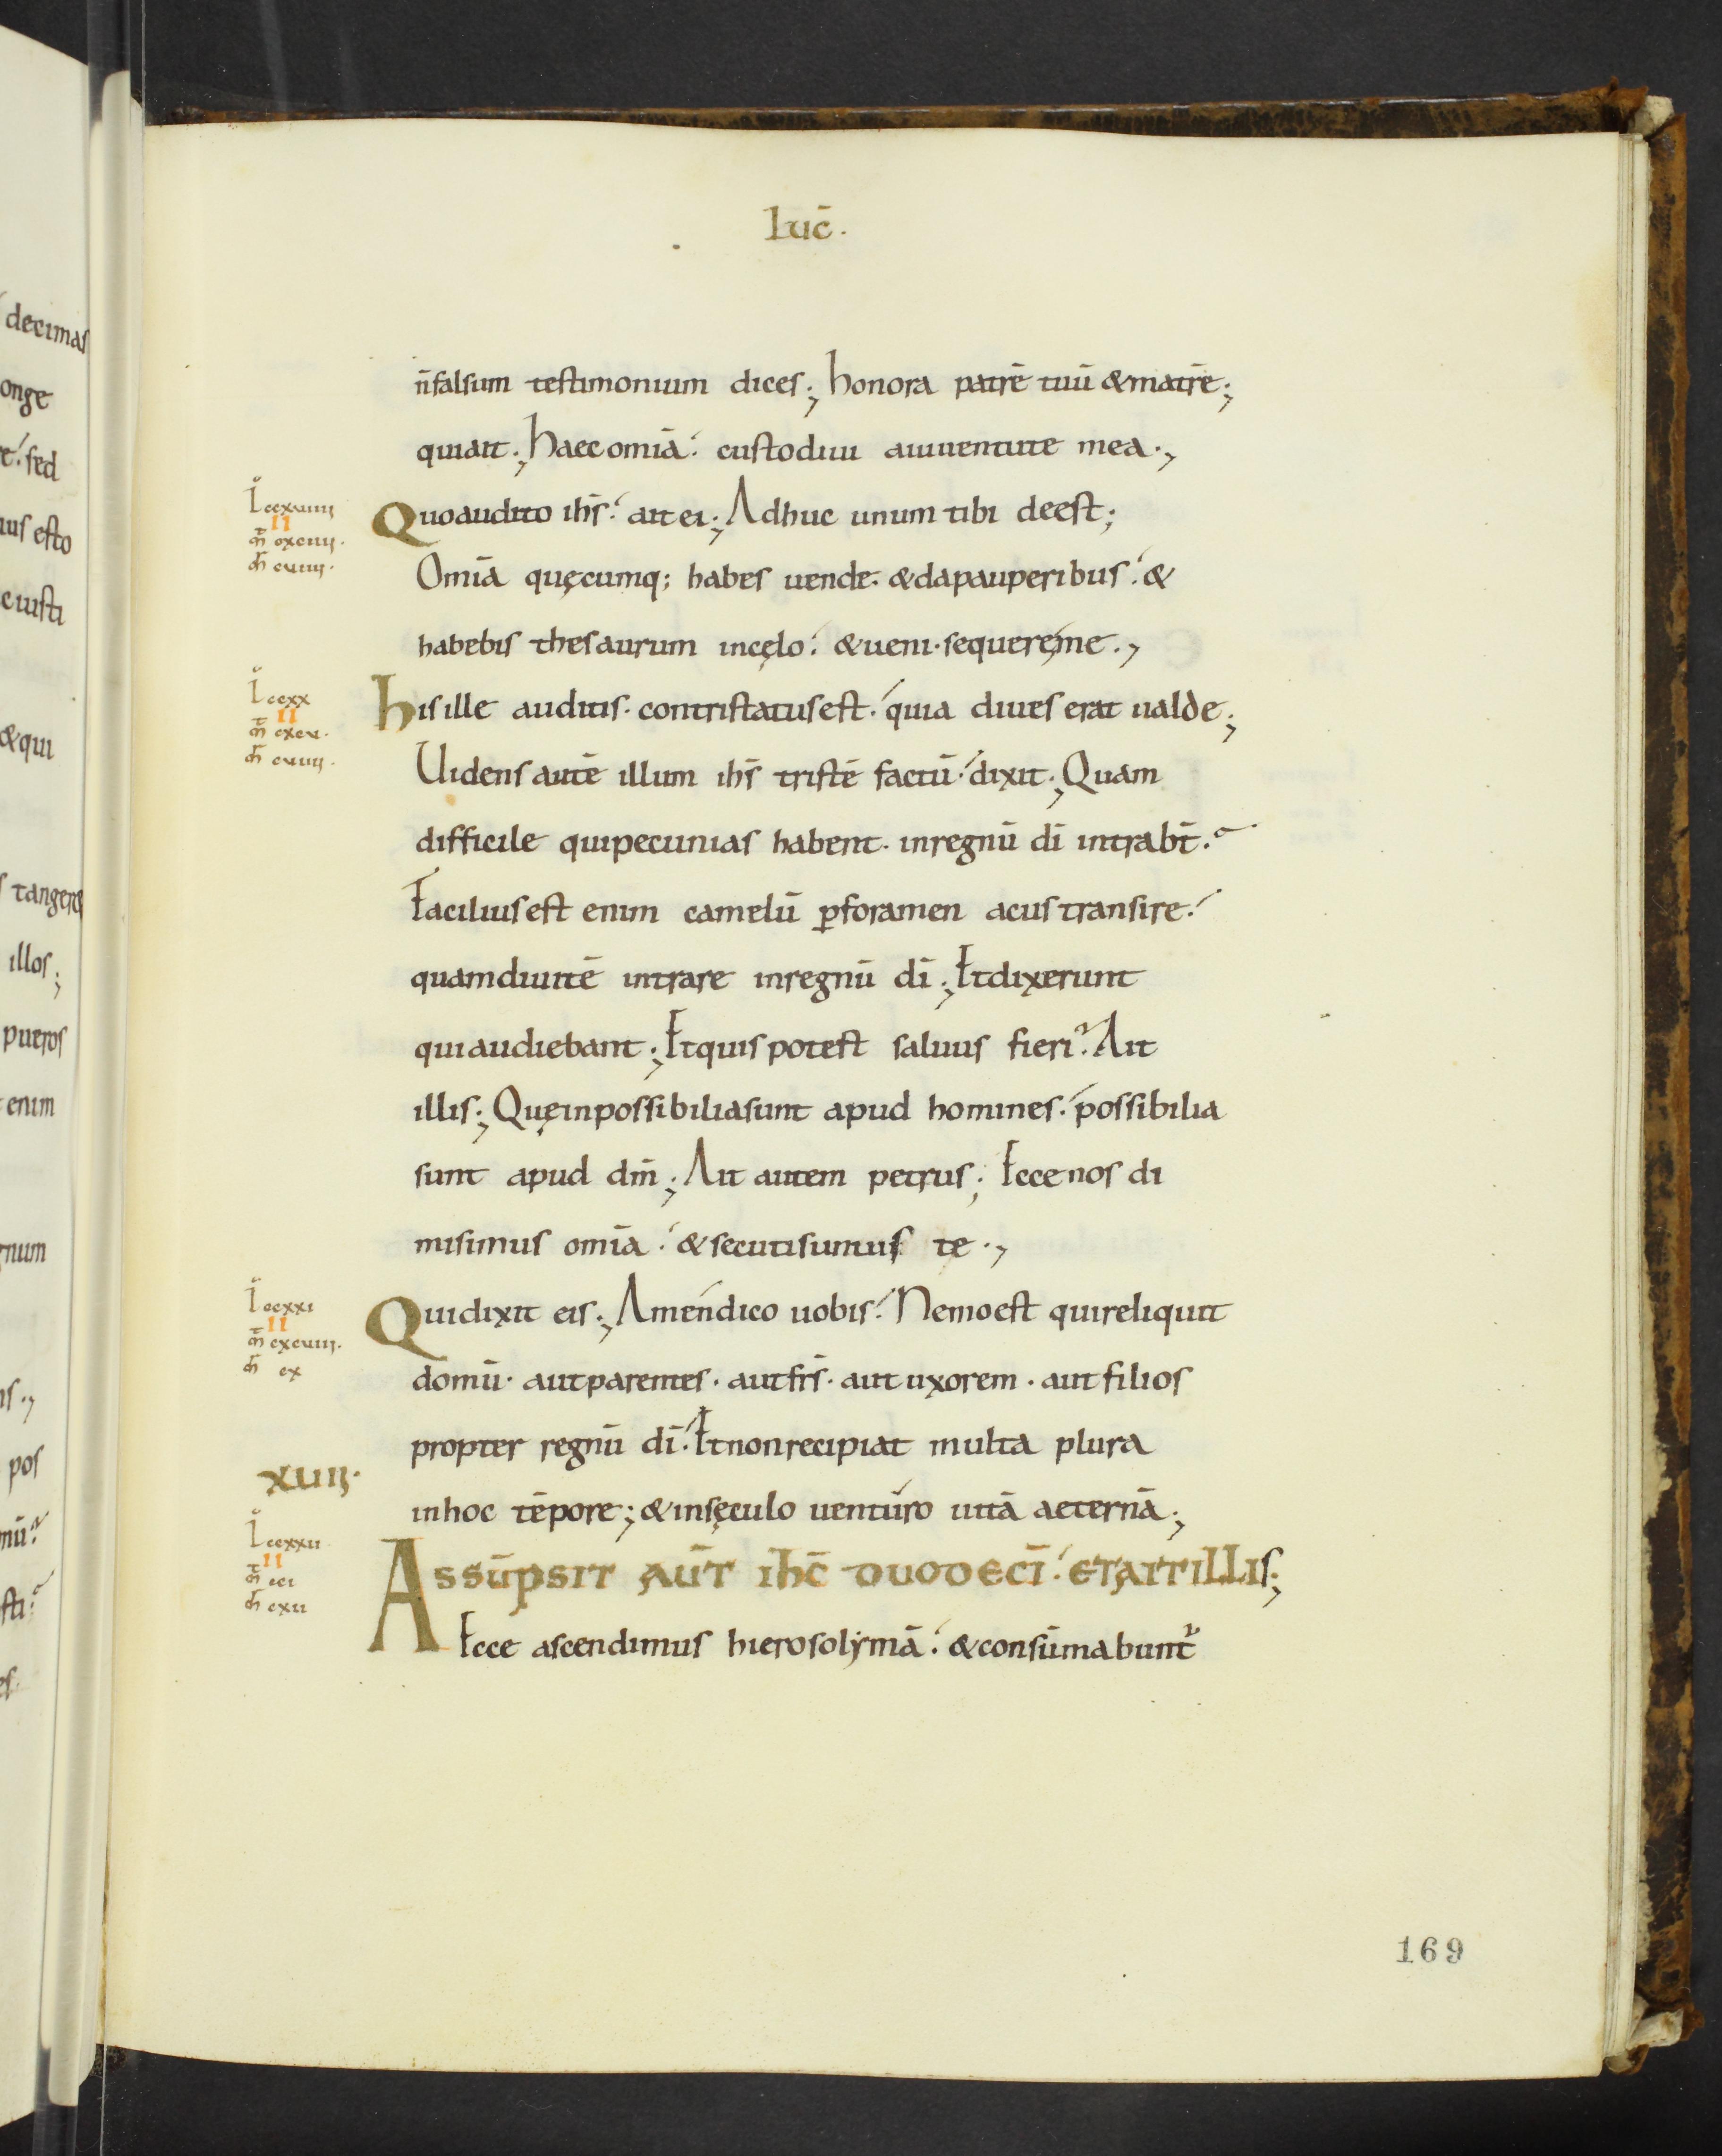 Luc̄.
n̄ falsum testimonium dices; honora patrē tuū & matrē;
qui ait; Haec om̄ia custodiui a iuuentute mea.,
L ccxuiiii
II
m̄ cxciiii.
m̄r cuiiii.
Quo audito ih̄s ait ei; Adhuc unum tibi deest;
Om̄ia quęcumq; habes uende. & da pauperibus. &
habebis thesaurum in cęlo. & ueni. sequere me.,
L ccxx
II
m̄ cxcu.
m̄r cuiiii.
His ille auditis. contristatus est. quia diues erat ualde;
Uidens autē illum ih̄s tristē factū. dixit; Quam
difficile qui pecunias habent. in regnū dī intrab̄t.
Facilius est enim camelū ꝑ foramen acus transire.
quam diuitē intrare in regnū dī; Et dixerunt
qui audiebant; Et quis potest saluus fieri? Ait
illis; Quę inpossibilia sunt apud homines. possibilia
sunt apud dm̄; Ait autem petrus; Ecce nos di
misimus om̄ia. & secuti sumus te.,
L ccxxi
II
m̄ cxcuiii.
m̄r cx
Qui dixit eis; Amen dico uobis. Nemo est qui reliquit
domū. aut parentes. aut fr̄s. aut uxorem. aut filios
propter regnū dī. Et non recipiat multa plura
in hoc tēpore; & in sęculo uenturo uitā aeternā;
XUIII.
L ccxxii
II
m̄ cci
m̄r cxii
ASSŪPSIT AŪT IHC̄ DUODECĪ. ET AIT ILLIS;
Ecce ascendimus hierosolẏmā. & consūmabunt᷑
169
decimas
onge
sed
ius esto
c iusti
& qui
tangeret
illos;
pueros
enim
num
pos